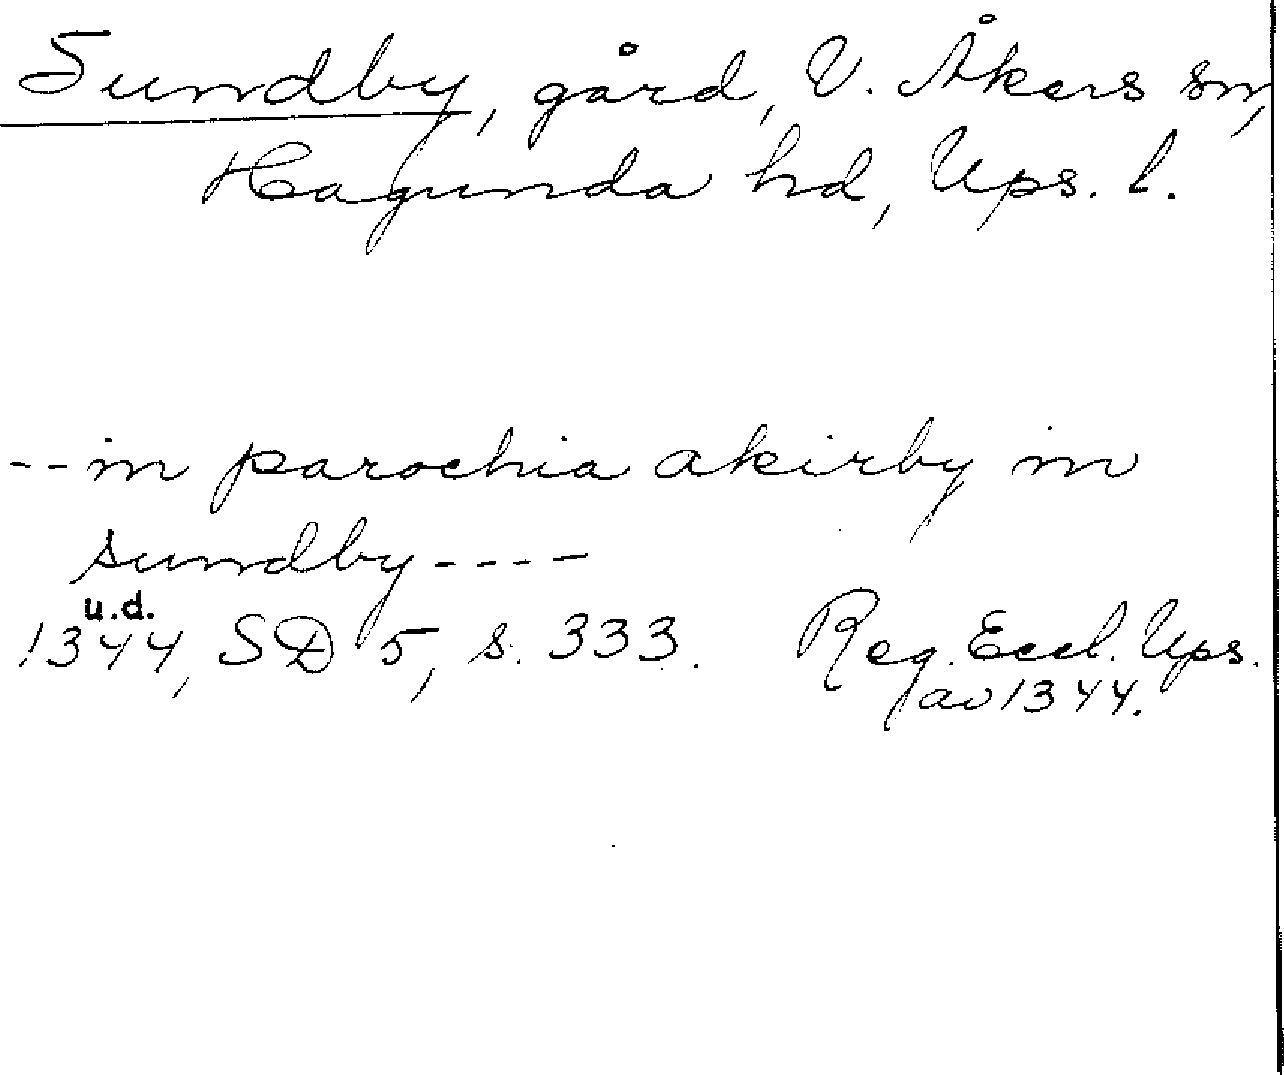 Sundby, gård, V. Åkers sn,
Hagunda hd, Ups. l.
-- in parochia akirby in
sundby ----
u.d.
1344, SD 5, s. 333. Reg. Eccl. Ups.
av 1344.